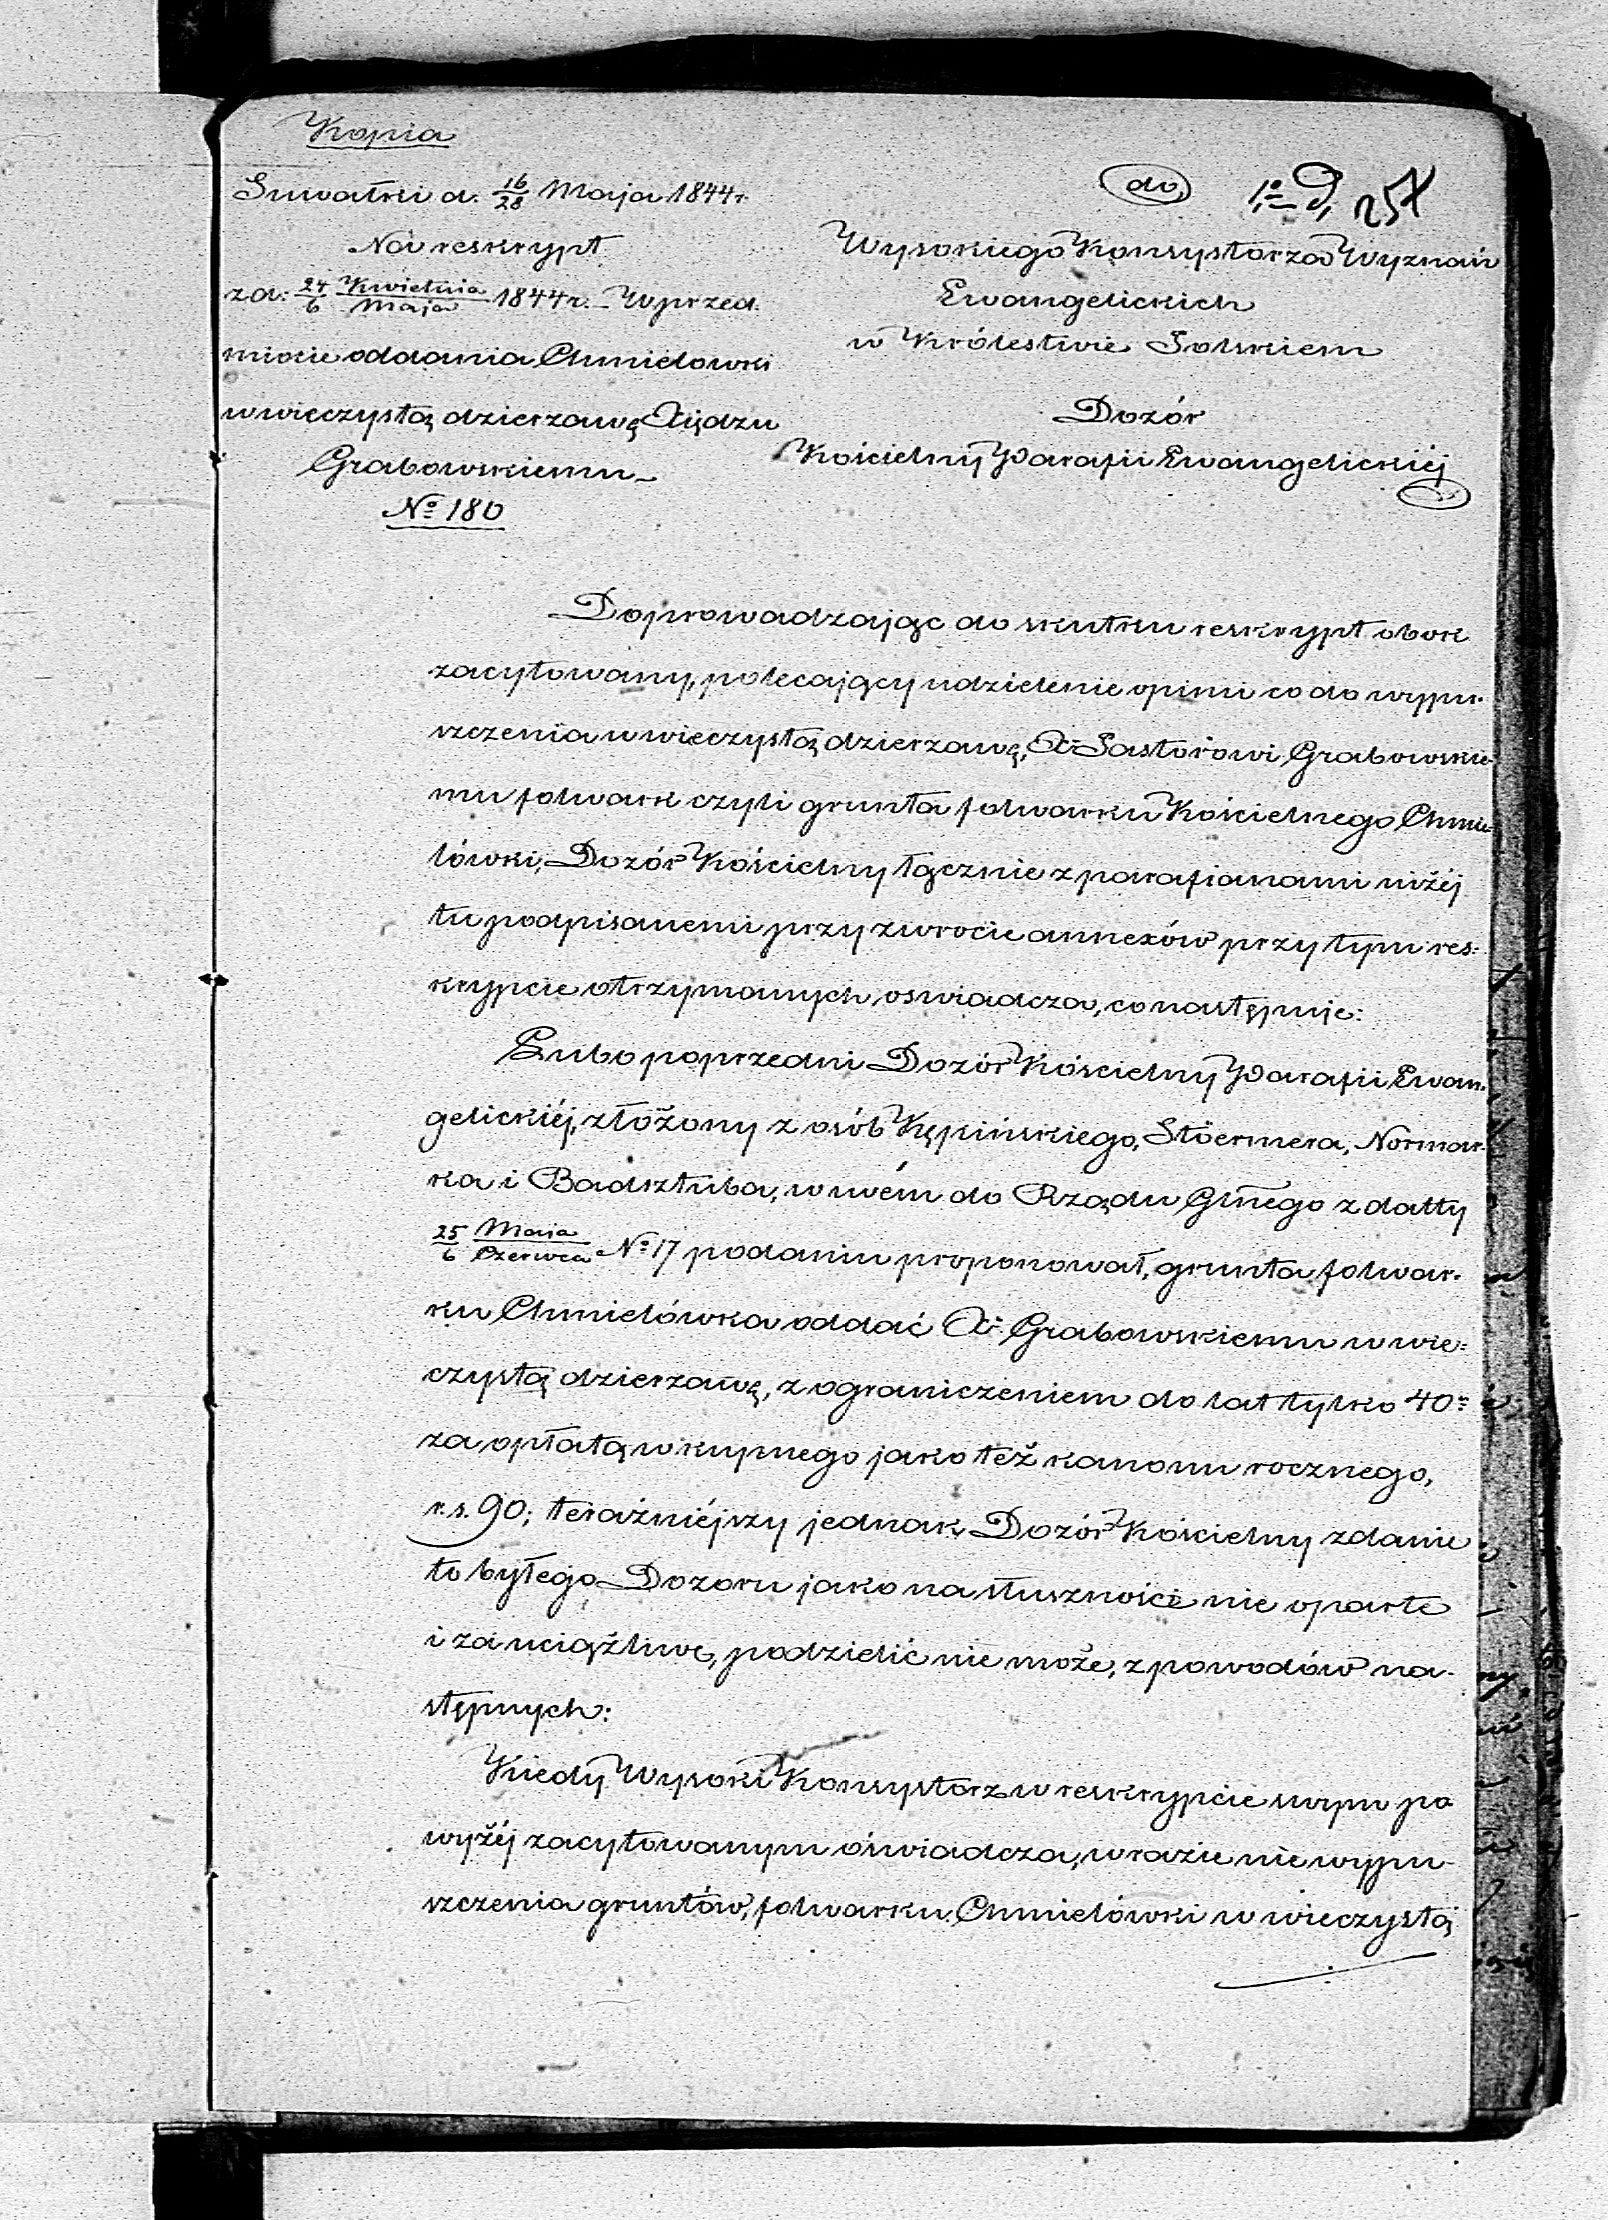 Kopia
Suwałki d. 16/28 Maja 1844 r.
Na reskrypt
za: 24/6 Kwietnia/Maja 1844 r. Wprzed.
miocie oddania Chmielowki
w wieczystą dzierzawę Xiędzu
Grabowskiemu
№ 180
do
257
Wysokiego Konsystorza Wyznań
Ewangelickich
w Królestwie Polskiem
Dozór
Kościelny Parafii Ewangelickiéj
Doprowadzając do skutku reskrypt obok
zacytowany, polecający udzielenie opinii co do wypu-
szczenia w wieczystą dzierzawę, Xr Pastorowi Grabowskie-
mu folwark czyli grunta folwarku Kościelnego Chmie-
lówki, Dozór Kościelny łącznie z parafianami niżéj
tu podpisanemi przy zwrocie annexów przy tym res-
krypcie otrzymanych oswiadcza, co następuje:
Lubo poprzedni Dozór Kościelny Parafii Ewan-
gelickiéj, złożony z osób Kępińskiego, Stöermera, Norman-
ka i Badsztuba, w swém do Rządu Glnego z datty
25/6 Maja/Czerwca № 17 podaniu proponował, grunta folwar-
ku Chmielówka oddać Xr. Grabowskiemu w wie-
czystą dzierzawę, z ograniczeniem do lat tylko 40
za opłatą wkupnego jako też kanonu rocznego,
r.s. 90; teraźniéjszy jednak Dozór Kościelny zdanie
to byłego Dozoru jako na słuszności nie oparte
i za uciążliwe, podzielić nie może, z powodów na-
stępnych:
Kiedy Wysoki Konsystorz w reskrypcie swym po
wyżéj zacytowanym oświadcza, w razie nie wypu-
szczenia gruntów, folwarku Chmielówki w wieczystą